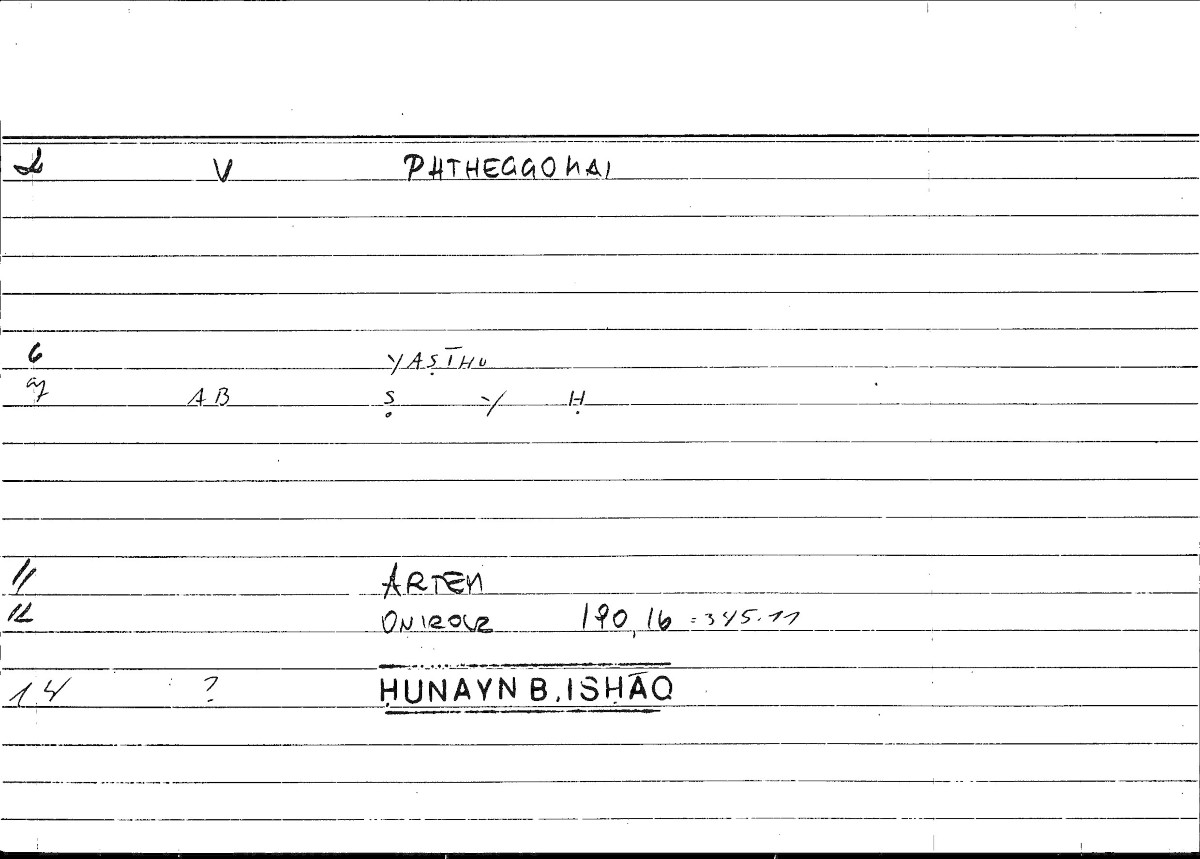 2 V PHTHEGGOMAI
6 YAṢĪḤU
07 AB Ṣ Y Ḥ
11 ARTEM
12 ONIROCR 190,16 = 345.11
14 ? ḤUNAYN B. ISḤĀQ